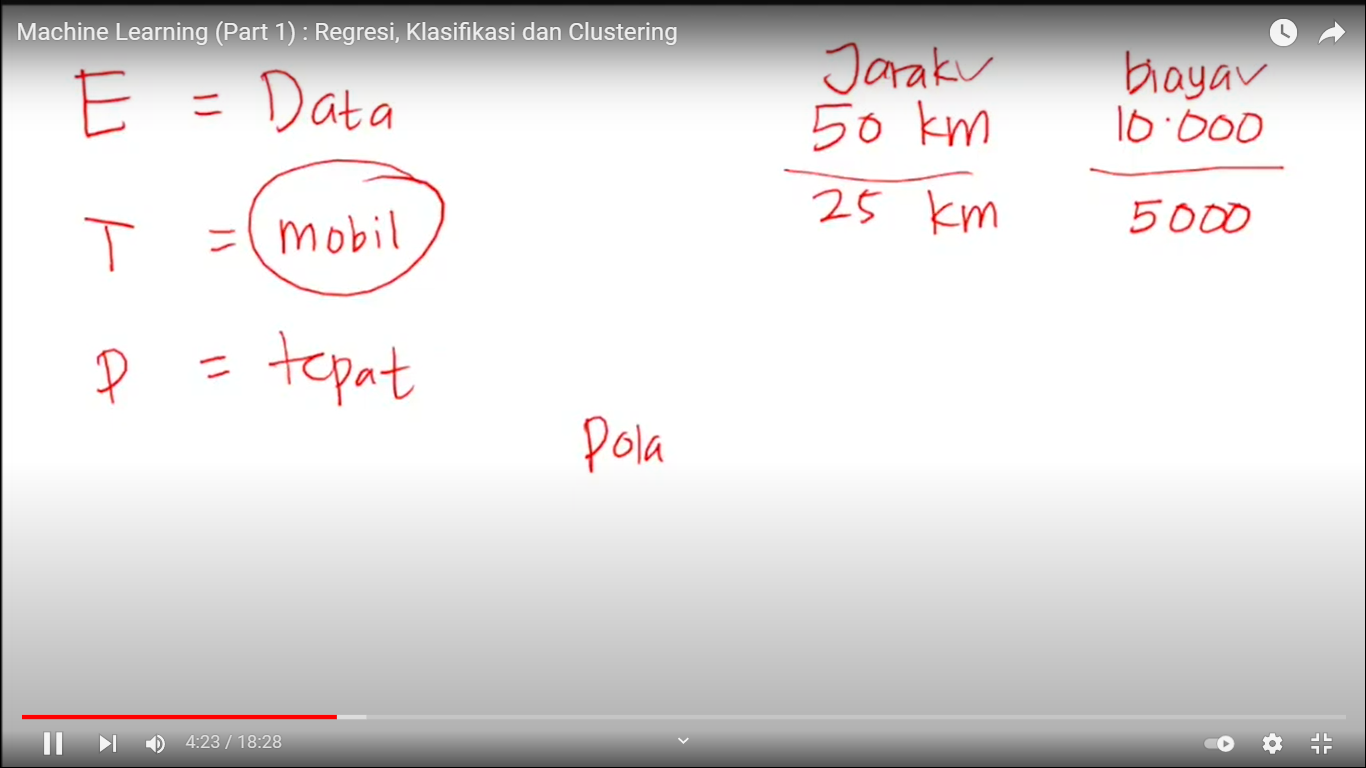 Machine Learning (Part 1) : Regresi, Klasifikasi dan Clustering
E = Data
T = mobil
P = tepat
Pola
Jarak✓ biaya✓
50 km 10.000
25 km 5000
4:23 / 18:28